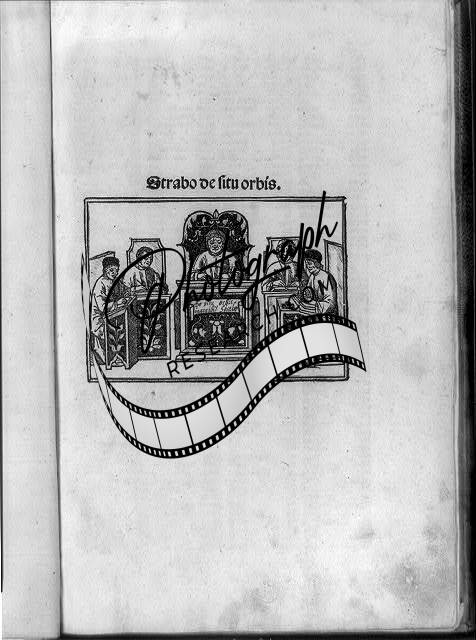 Strabo de situ orbis.
Photograph
RESEARCH.COM